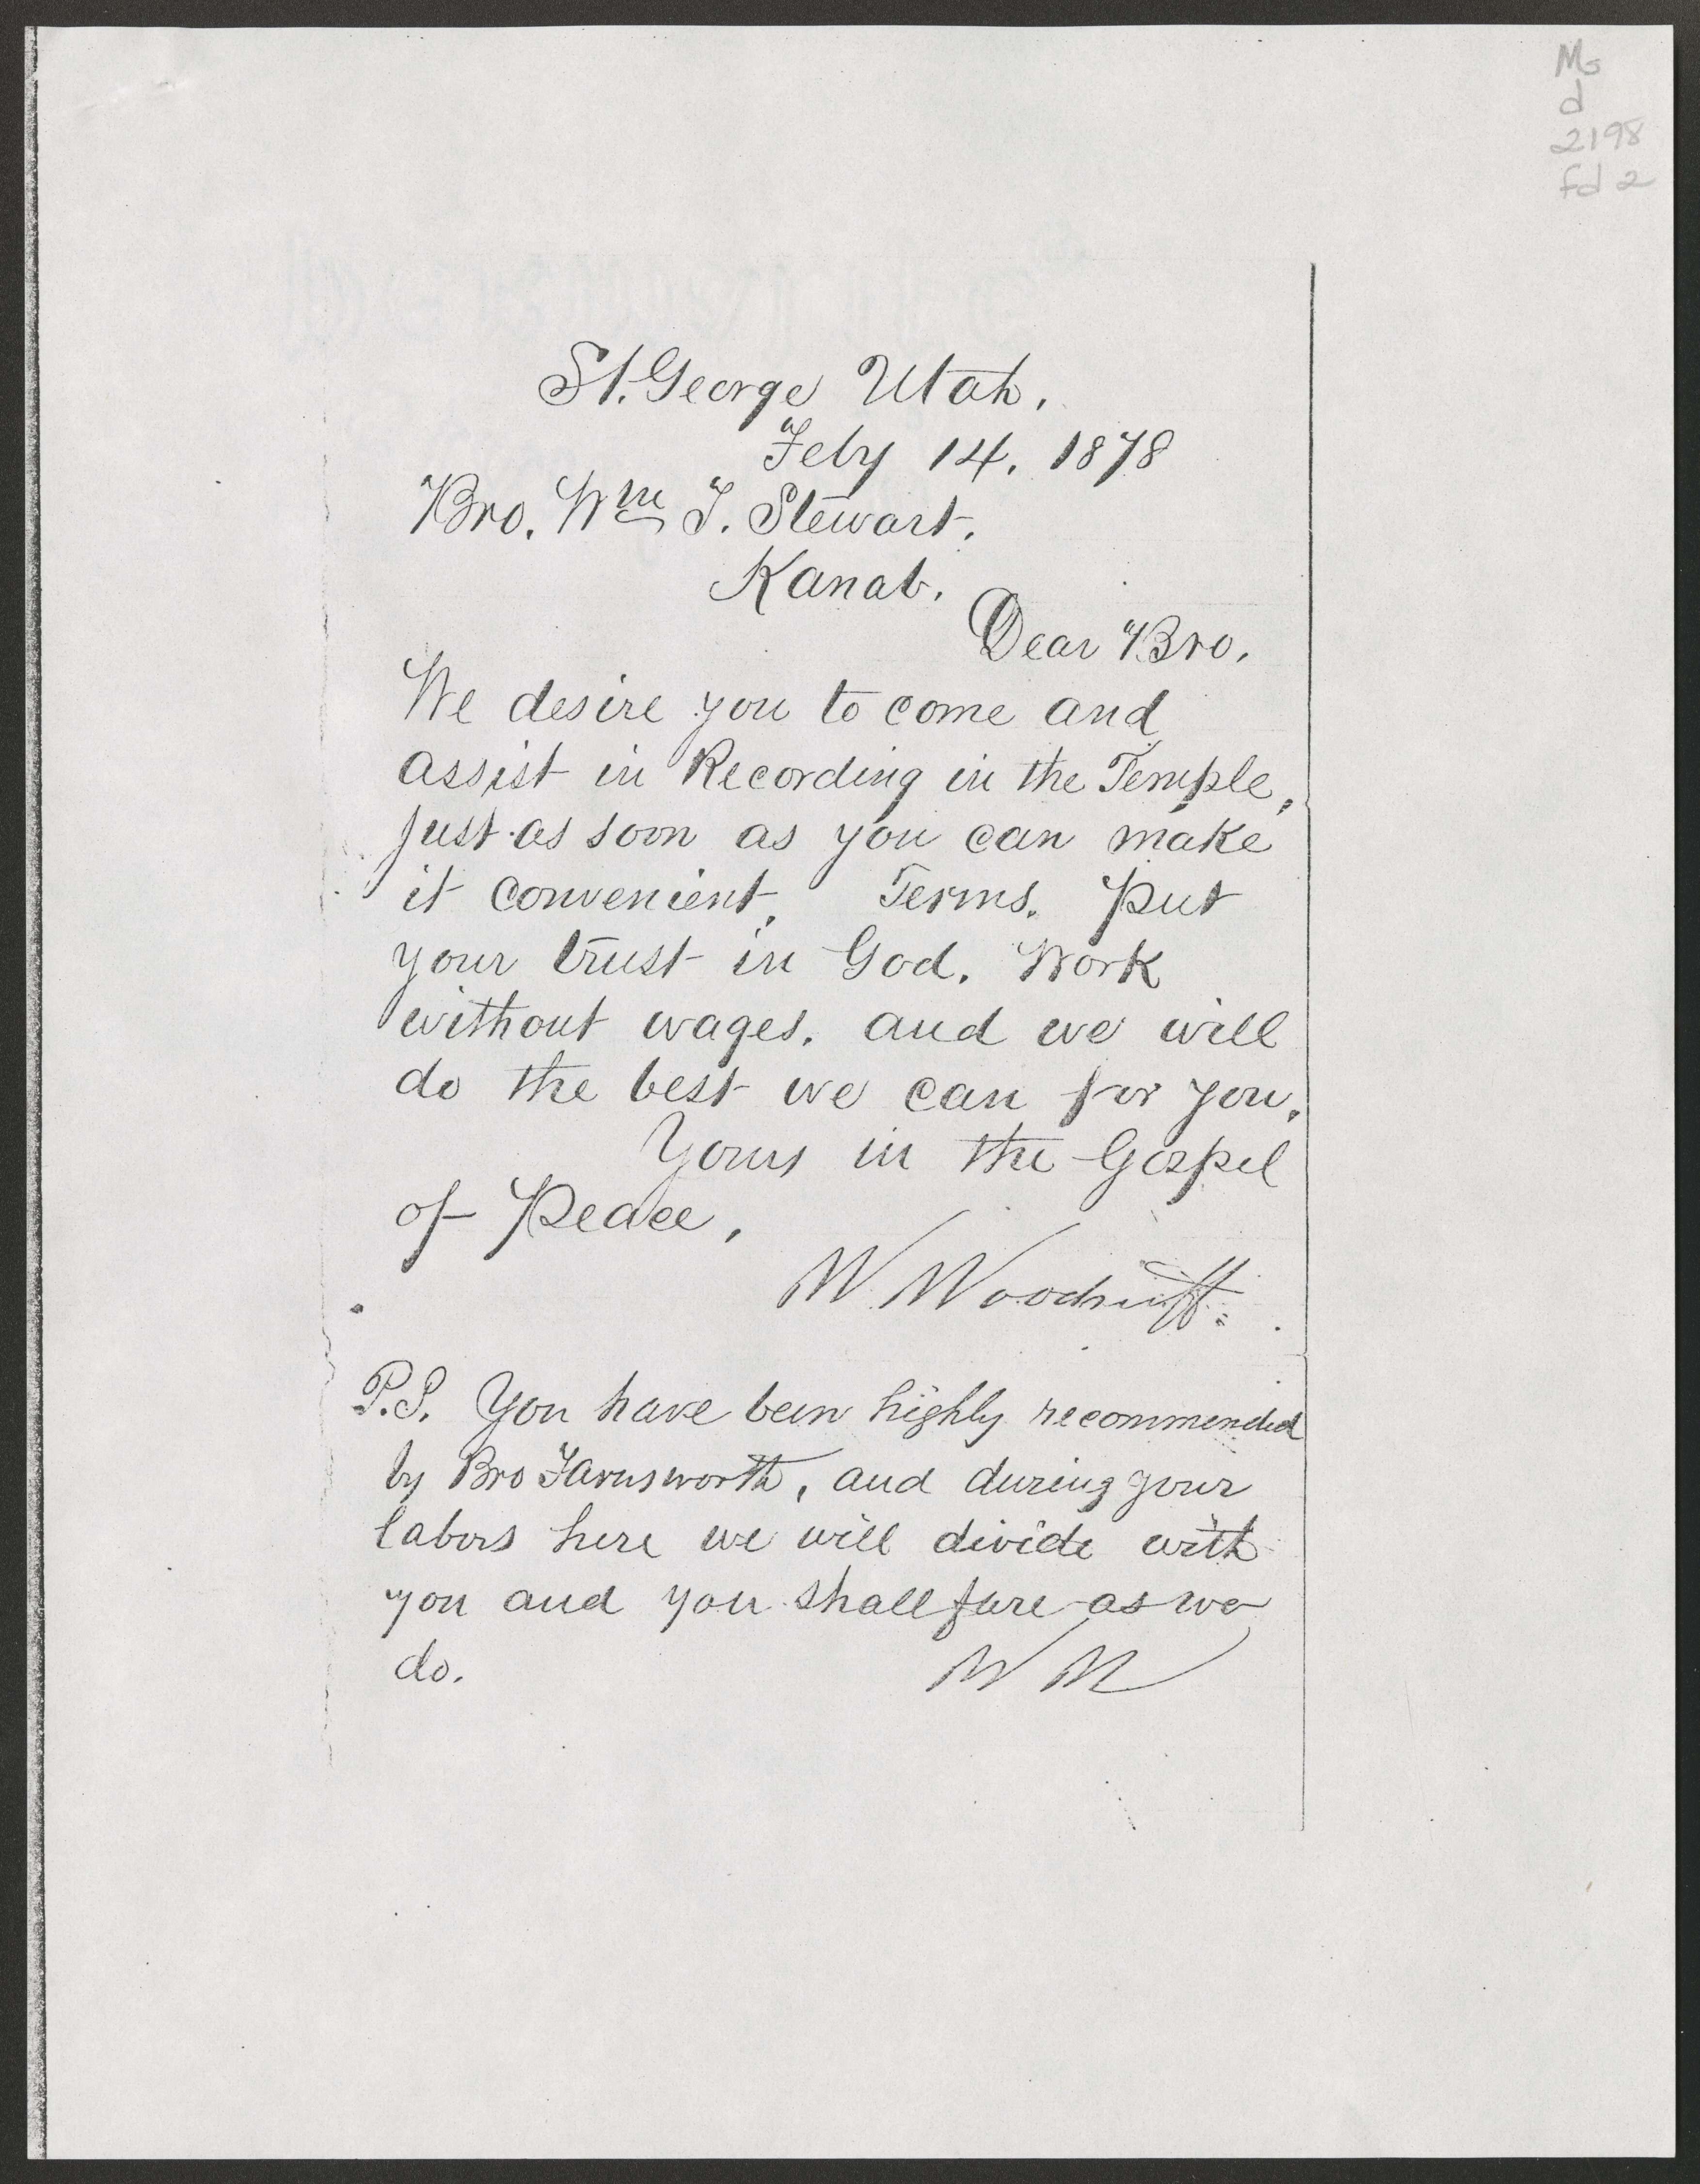 Ms
d
2198
fd 2
St. George Utah.
Feby 14, 1878
Bro. Wm J. Stewart.
Kanab.
Dear Bro.
We desire you to come and
assist in Recording in the Temple,
just as soon as you can make
it convenient. Terms. Put
your trust in God. Work
without wages. and we will
do the best we can for you.
Yours in the Gospel
of Peace,
W. Woodruff.
P.S. You have been highly recommended
by Bro Farnsworth, and during your
labors here we will divide with
you and you shall fare as we
do.
W W